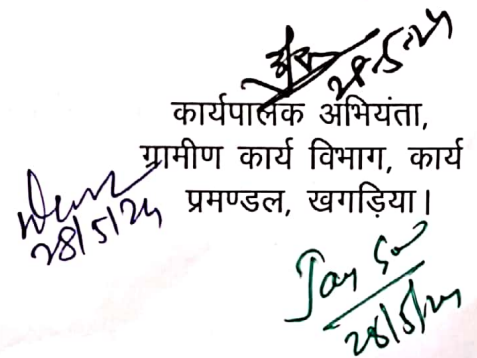 28.5.24
कार्यपालक अभियंता,
ग्रामीण कार्य विभाग, कार्य
प्रमण्डल, खगड़िया।
28/5/24
28/5/24